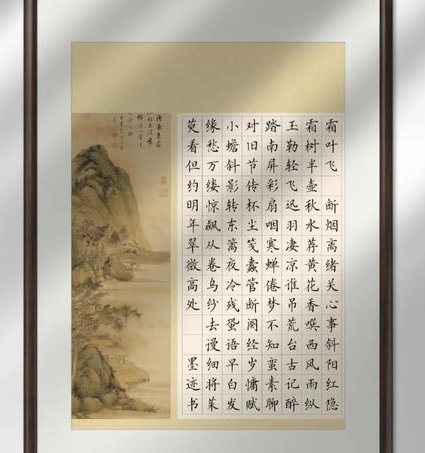 霜叶飞 断烟离绪关心事斜阳红隐
霜树半壶秋水荐黄花香噀西风雨纵
玉勒轻飞迅羽凄凉谁吊荒台古记醉
踏南屏彩扇咽寒蝉倦梦不知蛮素聊
对旧节传杯尘笺蠹管断阕经岁慵赋
小蟾斜影转东篱夜冷残蛩语早白发
缘愁万缕惊飙从卷乌纱去谩细将茱
萸看但约明年翠微高处 墨迹书